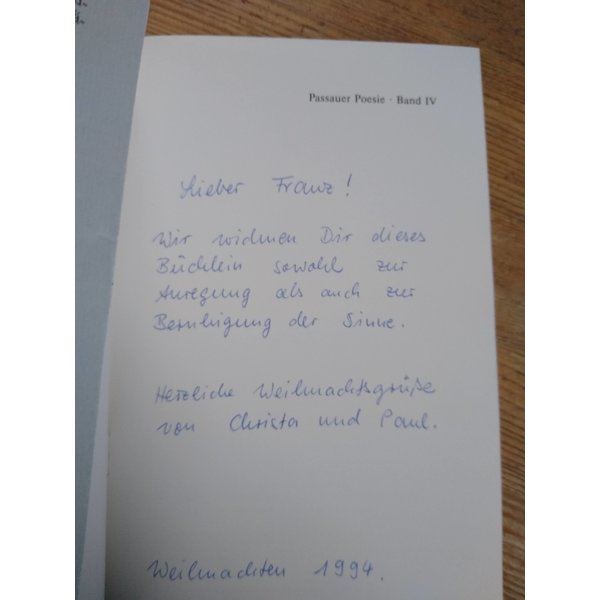 Passauer Poesie · Band IV
Lieber Franz!
Wir widmen Dir dieses
Büchlein sowohl zur
Anregung als auch zur
Beruhigung der Sinne.
Herzliche Weihnachtsgrüße
von Christa und Paul.
Weihnachten 1994.